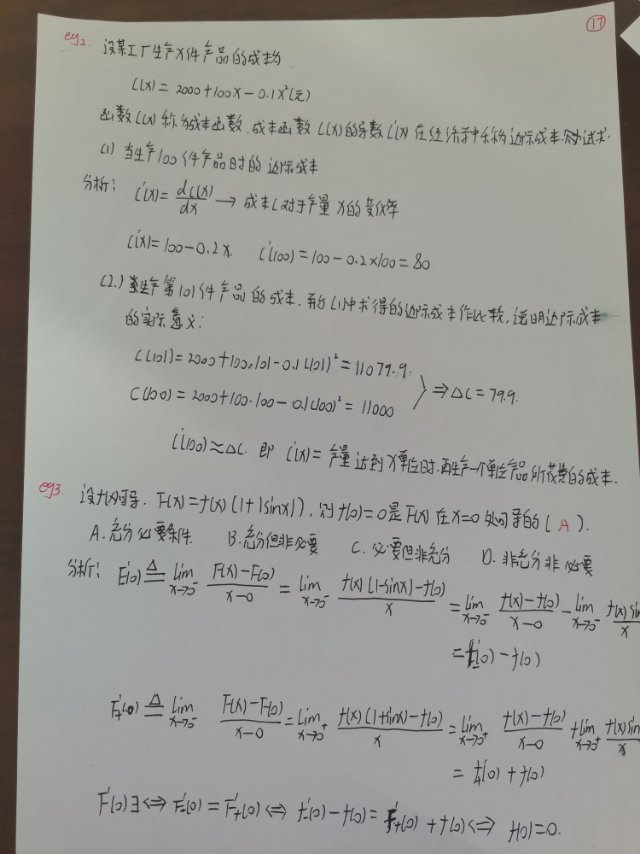 ⑰
eg2. 设某工厂生产X件产品的成本为
C(X) = 2000+100X-0.1X²(元)
函数C(X)称为成本函数,成本函数C(X)的导数C'(X)在经济学中称为边际成本.
(1) 当生产100件产品时的边际成本
分析: C'(X) = dC(X)/dX → 成本C对于产量X的变化率
C'(X) = 100-0.2X. C'(100) = 100-0.2×100 = 80
(2.) 生产第101件产品的成本,并与(1)中求得的边际成本作比较,说明边际成本
的实际意义:
C(101) = 2000+100·101-0.1(101)² = 11079.9.
C(100) = 2000+100·100-0.1(100)² = 11000
⇒ΔC = 79.9.
C'(100)≈ΔC. 即 C'(X) = 产量达到X单位时,再生产一个单位产品所花费的成本.
eg3. 设f(x)可导. F(x) = f(x)(1+|sinx|), 则f(0)=0是F(x)在x=0处可导的( A ).
A. 充分必要条件. B. 充分但非必要 C. 必要但非充分 D. 非充分非必要
分析: F'₋(0) ≜ lim x→0⁻ F(x)-F(0)/x-0 = lim x→0⁻ f(x)(1-sinx)-f(0)/x = lim x→0⁻ f(x)-f(0)/x-0 - lim x→0⁻ f(x)sin
= f'₋(0) - f(0)
F'₊(0) ≜ lim x→0⁻ F(x)-F(0)/x-0 = lim x→0⁺ f(x)(1+sinx)-f(0)/x = lim x→0⁺ f(x)-f(0)/x-0 + lim x→0⁺ f(x)sin/x
= f'₊(0) + f(0)
F'(0)∃ ⟺ F'₋(0) = F'₊(0) ⟺ f'₋(0) - f(0) = f'₊(0) + f(0) ⟺ f(0)=0.